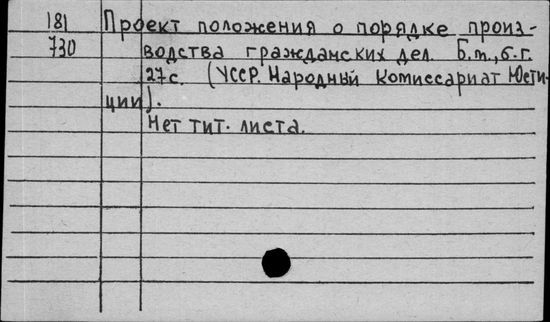 181 Проект положения о порядке произ-
730 водства гражданских дел. Б.m., б.г.
27с. (УССР. Народный Комиссариат Юсти-
ции).
Нет тит. листа.